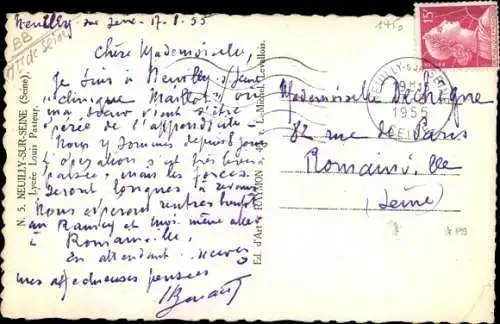 Neuilly-sur-Seine 17.8.55
Chère Mademoiselle,
Je suis à Neuilly s/Seine
"clinique Maillot" où
ma sœur vient d'être
opérée de l'appendicite
Nous y sommes depuis 8 jours
l'opération s'est très bien
passée, mais les forces
seront longues à revenir
Nous espérons rentrer bientôt
au Raincy et moi même aller
à Romainville.
En attendant recevez
mes affectueuses pensées
BB
N. 5. NEUILLY-SUR-SEINE (Seine).
Lycée Louis Pasteur.
Ed. d'Art RAYMON
L. Michel, Levallois.
15F
NEUILLY-SUR-
1955
SEINE
Mademoiselle
82 rue de Paris
Romainville
(Seine)